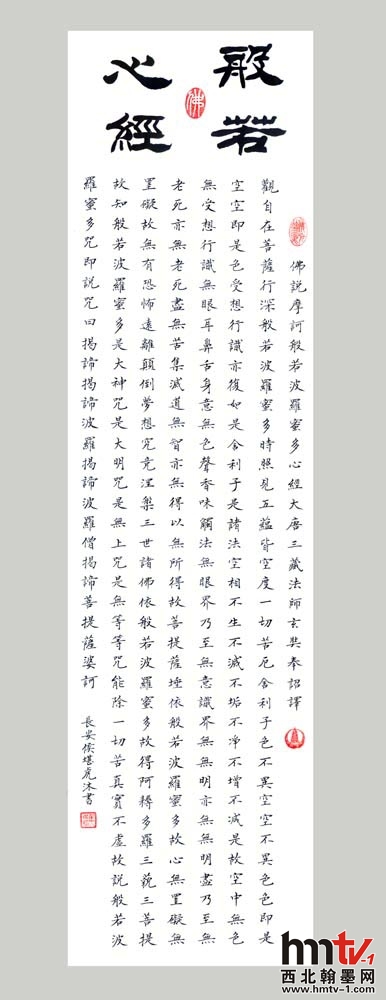 般若
心經
佛
佛說摩訶般若波羅蜜多心經大唐三藏法師玄奘奉詔譯
觀自在菩薩行深般若波羅蜜多時照見五蘊皆空度一切苦厄舍利子色不異空空不異色色即是
空空即是色受想行識亦復如是舍利子是諸法空相不生不滅不垢不淨不增不減是故空中無色
無受想行識無眼耳鼻舌身意無色聲香味觸法無眼界乃至無意識界無無明亦無無明盡乃至無
老死亦無老死盡無苦集滅道無智亦無得以無所得故菩提薩埵依般若波羅蜜多故心無罣礙無
罣礙故無有恐怖遠離顛倒夢想究竟涅槃三世諸佛依般若波羅蜜多故得阿耨多羅三藐三菩提
故知般若波羅蜜多是大神咒是大明咒是無上咒是無等等咒能除一切苦真實不虛故說般若波
羅蜜多咒即說咒曰揭諦揭諦波羅揭諦波羅僧揭諦菩提薩婆訶
長安侯堪虎沐書
hmtv-1
西北翰墨网
www.hmtv-1.com